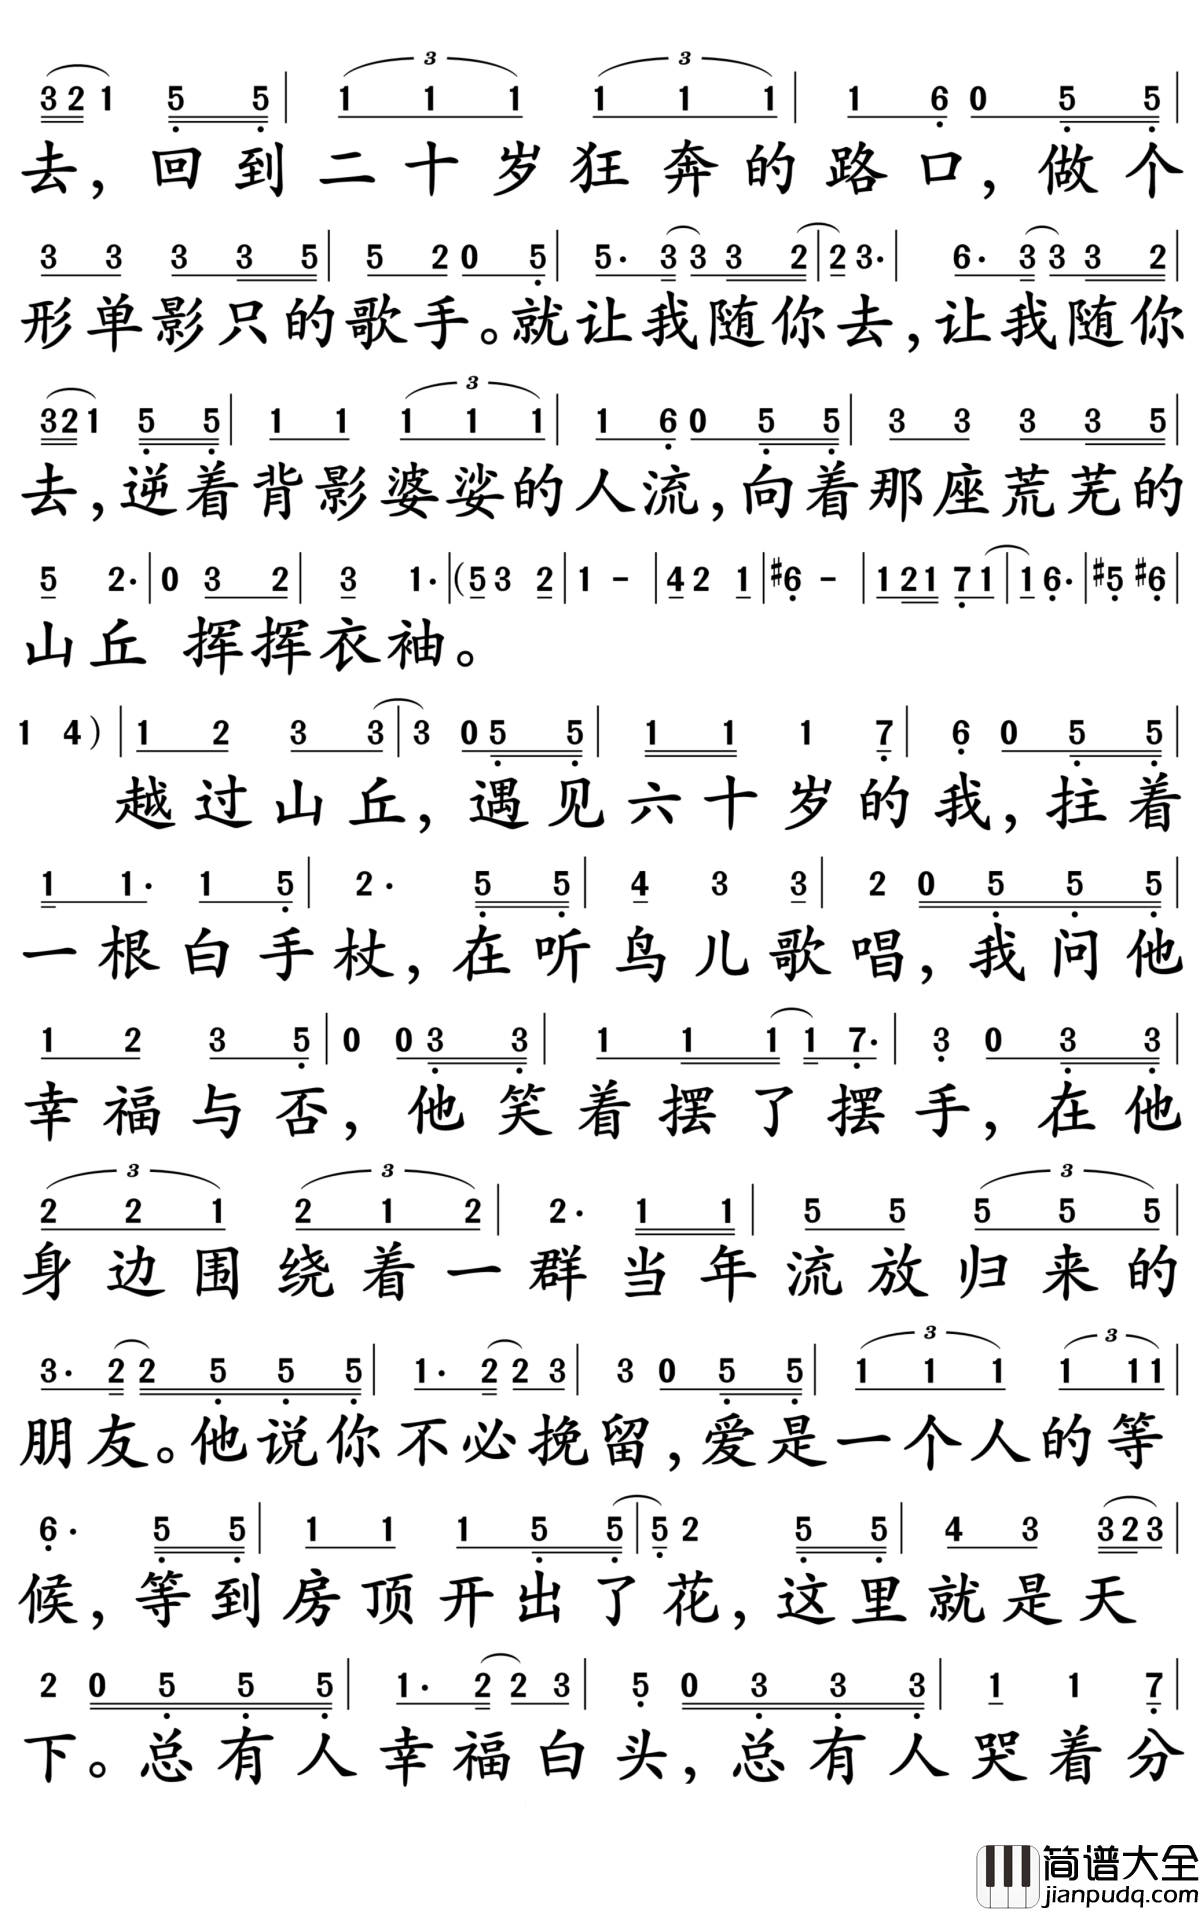 3 2 1 5 5 | 3 1 1 1 3 1 1 1 | 1 6 0 5 5 |
去，回到二十岁狂奔的路口，做个
3 3 3 3 5 | 5 2 0 5 | 5· 3 3 3 2 | 2 3· | 6· 3 3 3 2 |
形单影只的歌手。就让我随你去，让我随你
3 2 1 5 5 | 1 1 3 1 1 1 | 1 6 0 5 5 | 3 3 3 3 5 |
去，逆着背影婆娑的人流，向着那座荒芜的
5 2· | 0 3 2 | 3 1· | (5 3 2 | 1 - | 4 2 1 | #6 - | 1 2 1 7 1 | 1 6· | #5 #6 |
山丘 挥挥衣袖。
1 4) | 1 2 3 3 | 3 0 5 5 | 1 1 1 7 | 6 0 5 5 |
越过山丘，遇见六十岁的我，拄着
1 1· 1 5 | 2· 5 5 | 4 3 3 | 2 0 5 5 5 |
一根白手杖，在听鸟儿歌唱，我问他
1 2 3 5 | 0 0 3 3 | 1 1 1 1 7· | 3 0 3 3 |
幸福与否，他笑着摆了摆手，在他
3 2 2 1 3 2 1 2 | 2· 1 1 | 5 5 3 5 5 5 |
身边围绕着一群当年流放归来的
3· 2 2 5 5 5 | 1· 2 2 3 | 3 0 5 5 | 3 1 1 1 3 1 1 1 |
朋友。他说你不必挽留，爱是一个人的等
6· 5 5 | 1 1 1 5 5 | 5 2 5 5 | 4 3 3 2 3 |
候，等到房顶开出了花，这里就是天
2 0 5 5 5 | 1· 2 2 3 | 5 0 3 3 3 | 1 1 7 |
下。总有人幸福白头，总有人哭着分
简谱大全
jianpudq.com